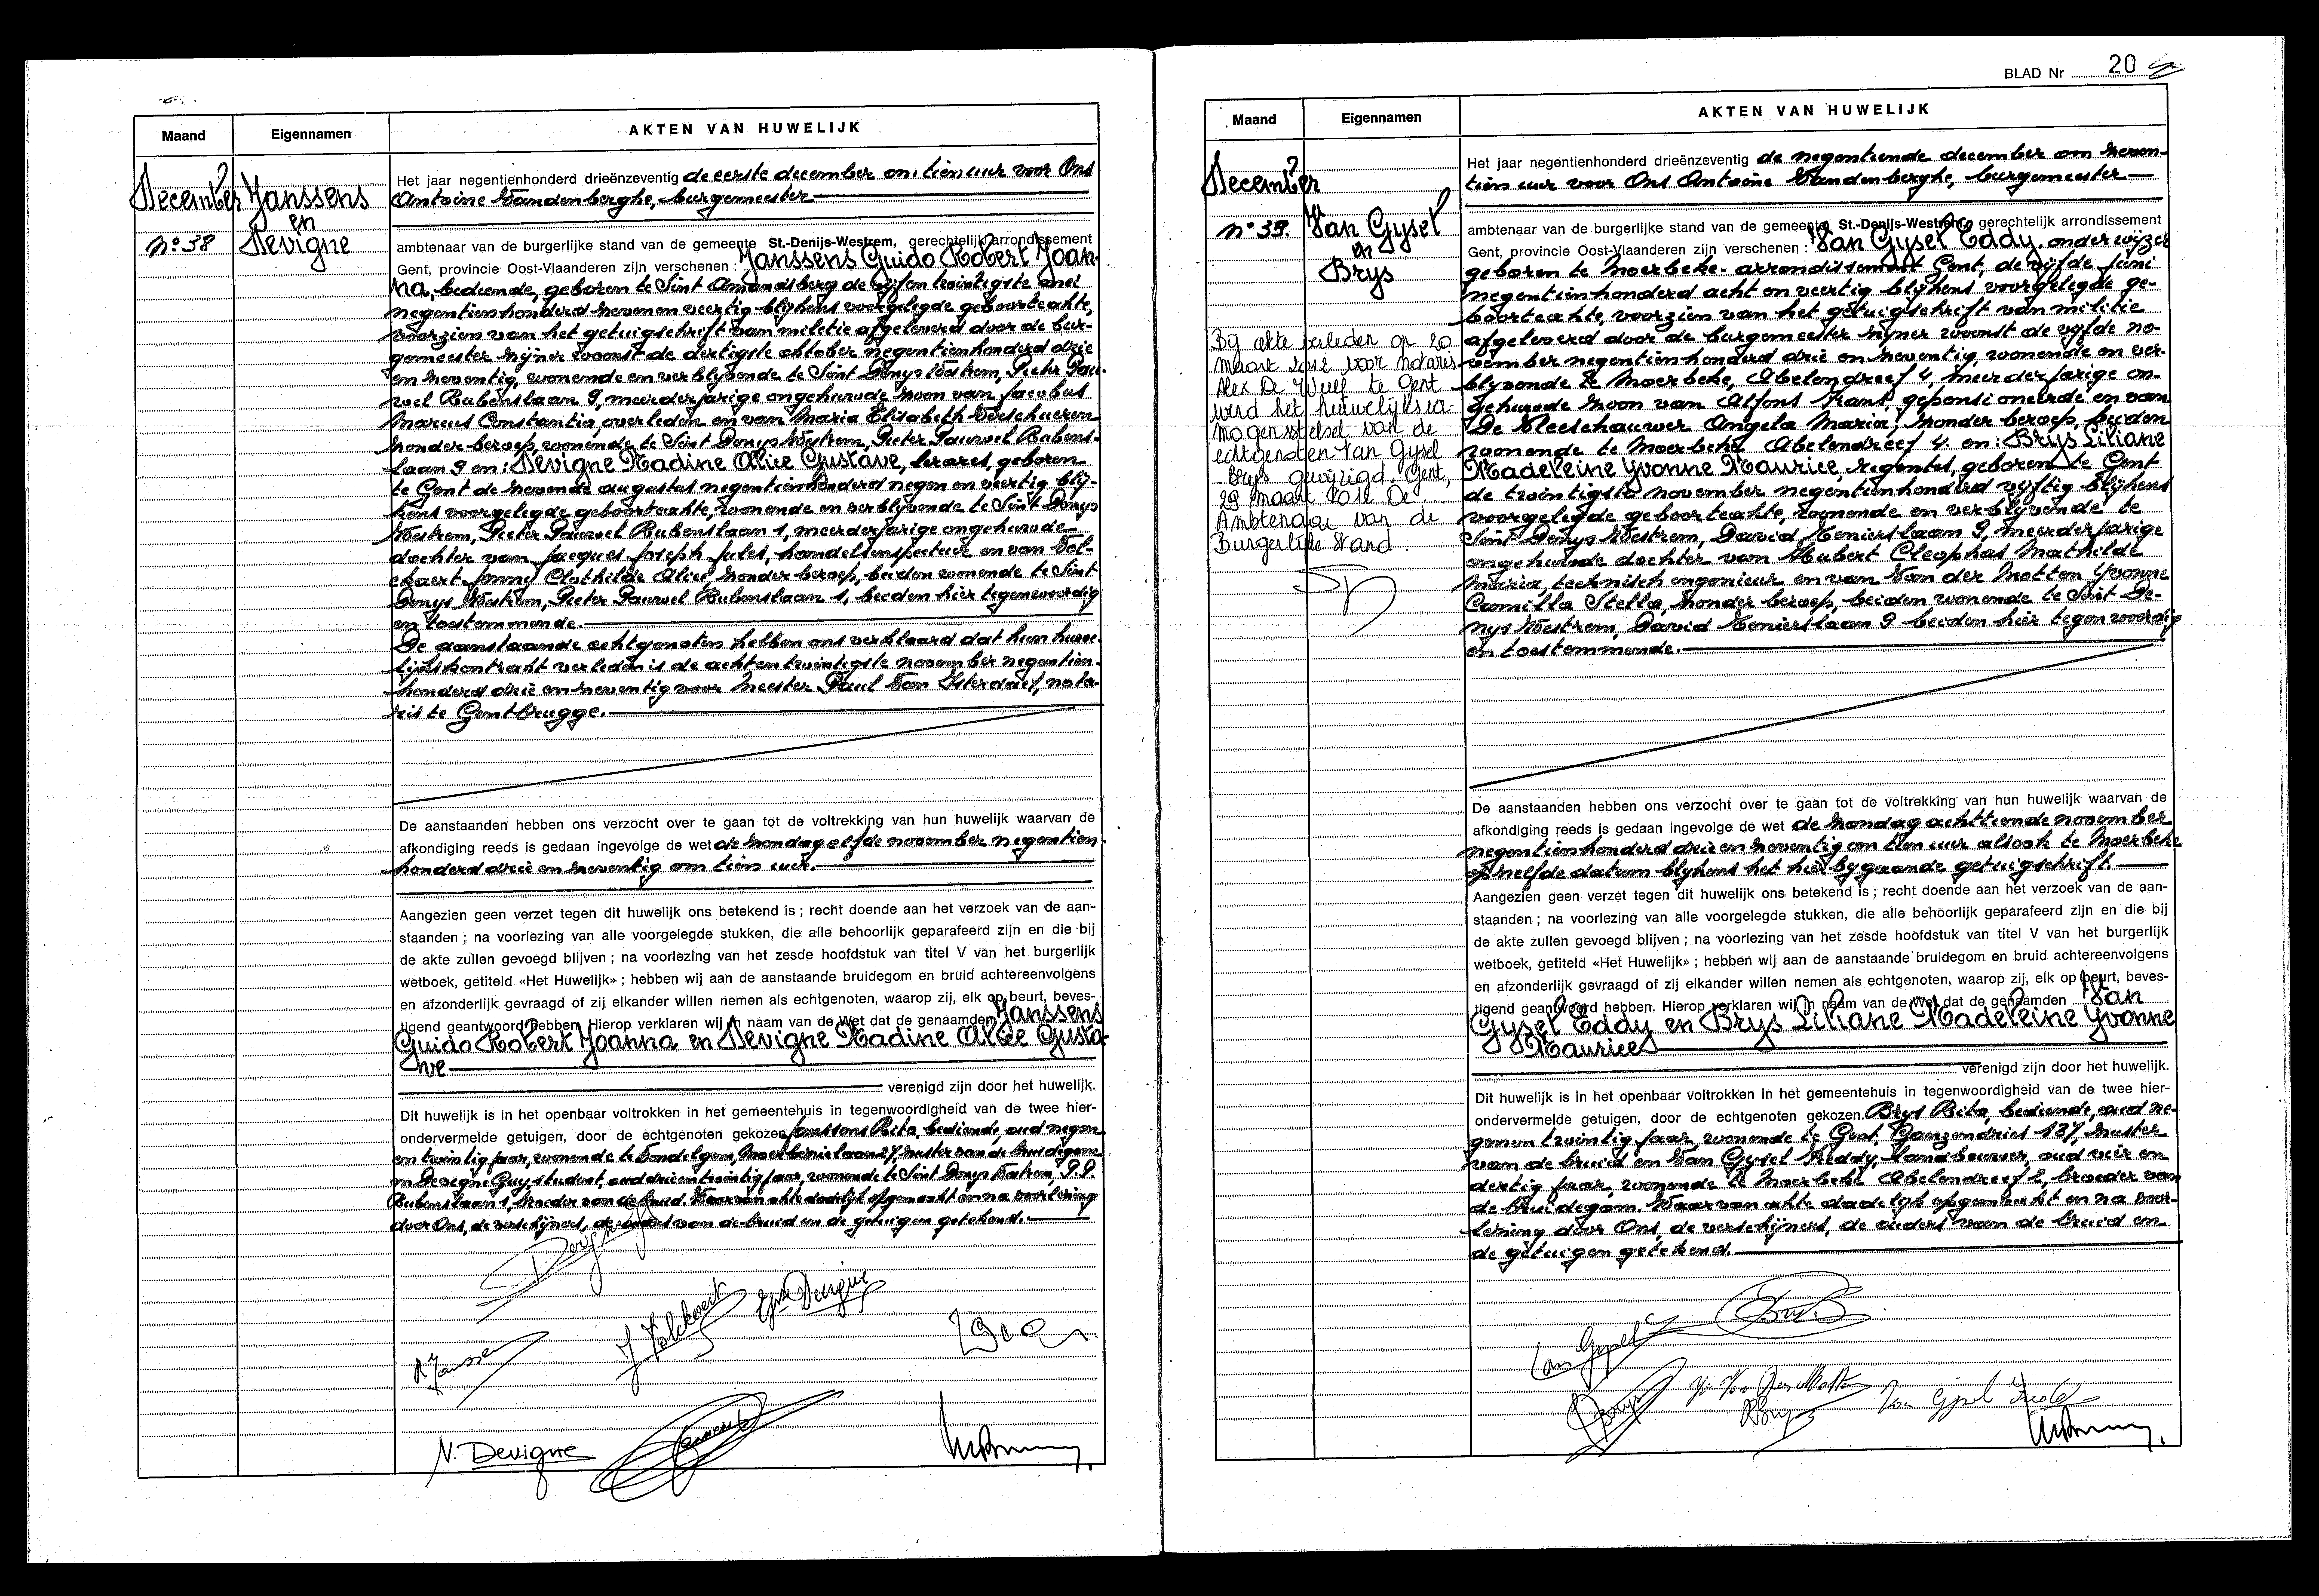 Maand
Eigennamen
AKTEN VAN HUWELIJK
December
n° 38
Janssens
en
Devigne
Het jaar negentienhonderd drieënzeventig de eerste december om tien uur voor Ons
Antoine Vandenberghe, burgemeester
ambtenaar van de burgerlijke stand van de gemeente St.-Denijs-Westrem, gerechtelijk arrondissement
Gent, provincie Oost-Vlaanderen zijn verschenen : Janssens Guido Robert Joan-
na, bediende, geboren te Sint Amandsberg de vijfentwintigste mei
negentienhonderd zevenenveertig blijkens voorgelegde geboorteakte,
voorzien van het getuigschrift van militie afgeleverd door de bur-
gemeester zijner woonst de dertigste oktober negentienhonderd drie
en zeventig, wonende en verblijvende te Sint Denys Westrem, Pieter Pau-
wel Rubenslaan 9, meerderjarige ongehuwde zoon van Jacobus
Marcus Constantia, overleden en van Maria Elisabeth Verschueren
zonder beroep, wonende te Sint Denys Westrem, Pieter Pauwel Rubens-
laan 9 en: Devigne Nadine Alice Gustave, lerares, geboren
te Gent de zevende augustus negentienhonderd negen en veertig blij-
kens voorgelegde geboorteakte, wonende en verblijvende te Sint Denys
Westrem, Pieter Pauwel Rubenslaan 1, meerderjarige ongehuwde
dochter van Jacques Joseph Jules, handelsinspecteur en van Vol-
ckaert Jenny Clothilde Alice, zonder beroep, beiden wonende te Sint
Denys Westrem, Pieter Pauwel Rubenslaan 1, beiden hier tegenwoordig
en toestemmende.
De aanstaande echtgenoten hebben ons verklaard dat hun huwe-
lijkskontrakt verleden is de achtentwintigste november negentien-
honderd drie en zeventig voor Meester Paul Van Isterdael, nota-
ris te Gentbrugge.
De aanstaanden hebben ons verzocht over te gaan tot de voltrekking van hun huwelijk waarvan de
afkondiging reeds is gedaan ingevolge de wet de zondag elfde november negentien-
honderd drie en zeventig om tien uur.
Aangezien geen verzet tegen dit huwelijk ons betekend is ; recht doende aan het verzoek van de aan-
staanden ; na voorlezing van alle voorgelegde stukken, die alle behoorlijk geparafeerd zijn en die bij
de akte zullen gevoegd blijven ; na voorlezing van het zesde hoofdstuk van titel V van het burgerlijk
wetboek, getiteld «Het Huwelijk» ; hebben wij aan de aanstaande bruidegom en bruid achtereenvolgens
en afzonderlijk gevraagd of zij elkander willen nemen als echtgenoten, waarop zij, elk op beurt, beves-
tigend geantwoord hebben. Hierop verklaren wij in naam van de Wet dat de genaamden Janssens
Guido Robert Joanna en Devigne Nadine Alice Gusta-
ve
verenigd zijn door het huwelijk.
Dit huwelijk is in het openbaar voltrokken in het gemeentehuis in tegenwoordigheid van de twee hier-
ondervermelde getuigen, door de echtgenoten gekozen Janssens Rita, bediende, oud negen
en twintig jaar, wonende te Vondelgem, 27, zuster van de bruidegom
en Devigne Guy, student, oud drieëntwintig jaar, wonende te Sint Denys Westrem, P.P.
Rubenslaan 1, broeder van de bruid. Waarvan akte dadelijk opgemaakt en na voorlezing
door Ons, de verschijners, de ouders van de bruid en de getuigen getekend.
J Volckaert
Devigne
R Janssens
N. Devigne
BLAD Nr 20
Maand
Eigennamen
AKTEN VAN HUWELIJK
December
n° 39.
Van Gysel
en
Brys
Bij akte verleden op 20
maart 2012 voor notaris
Alex De Wulf te Gent
werd het huwelijksver-
mogensstelsel van de
echtgenoten Van Gysel
- Brys gewijzigd. Gent,
29 maart 2012 De
Ambtenaar van de
Burgerlijke Stand.
Het jaar negentienhonderd drieënzeventig de negentiende december om zeven-
tien uur voor Ons Antoine Vandenberghe, burgemeester
ambtenaar van de burgerlijke stand van de gemeente St.-Denijs-Westrem, gerechtelijk arrondissement
Gent, provincie Oost-Vlaanderen zijn verschenen : Van Gysel Eddy, onderwijzer
geboren te Moerbeke- arrondissement Gent, de vijfde juni
negentienhonderd acht en veertig blijkens voorgelegde ge-
boorteakte, voorzien van het getuigschrift van militie
afgeleverd door de burgemeester zijner woonst de vijfde no-
vember negentienhonderd drie en zeventig, wonende en ver-
blijvende te Moerbeke, Abelendreef 4, meerderjarige on-
gehuwde zoon van Alfons Frans, gepensioneerde en van
De Vleeshauwer Angela Maria, zonder beroep, beiden
wonende te Moerbeke Abelendreef 4. en: Brys Liliane
Madeleine Yvonne Maurice, regentes, geboren te Gent
de twintigste november negentienhonderd vijftig blijkens
voorgelegde geboorteakte, wonende en verblijvende te
Sint Denys Westrem, David Tenierslaan 9, meerderjarige
ongehuwde dochter van Hubert Cleophas Mathilde
Maria, technisch ingenieur en van Van der Motten Yvonne
Camilla Stella, zonder beroep, beiden wonende te Sint De-
nys Westrem, David Tenierslaan 9 beiden hier tegenwoordig
en toestemmende.
De aanstaanden hebben ons verzocht over te gaan tot de voltrekking van hun huwelijk waarvan de
afkondiging reeds is gedaan ingevolge de wet de zondag achttiende november
negentienhonderd drie en zeventig om tien uur alsook te Moerbeke
op zelfde datum blijkens het hierbygaande getuigschrift.
Aangezien geen verzet tegen dit huwelijk ons betekend is ; recht doende aan het verzoek van de aan-
staanden ; na voorlezing van alle voorgelegde stukken, die alle behoorlijk geparafeerd zijn en die bij
de akte zullen gevoegd blijven ; na voorlezing van het zesde hoofdstuk van titel V van het burgerlijk
wetboek, getiteld «Het Huwelijk» ; hebben wij aan de aanstaande bruidegom en bruid achtereenvolgens
en afzonderlijk gevraagd of zij elkander willen nemen als echtgenoten, waarop zij, elk op beurt, beves-
tigend geantwoord hebben. Hierop verklaren wij in naam van de Wet dat de genaamden Van
Gysel Eddy en Brys Liliane Madeleine Yvonne
Maurice
verenigd zijn door het huwelijk.
Dit huwelijk is in het openbaar voltrokken in het gemeentehuis in tegenwoordigheid van de twee hier-
ondervermelde getuigen, door de echtgenoten gekozen. Brys Rita, bediende, oud ne-
genentwintig jaar, wonende te Gent, Ganzendries 137, zuster
van de bruid en Van Gysel Freddy, landbouwer, oud vier en
dertig jaar, wonende te Moerbeke Abelendreef 2, broeder van
de bruidegom. Waarvan akte dadelijk opgemaakt en na voor-
lezing door Ons, de verschijners, de ouders van de bruid en
de getuigen getekend.
Van Gysel
Brys
Van Gysel